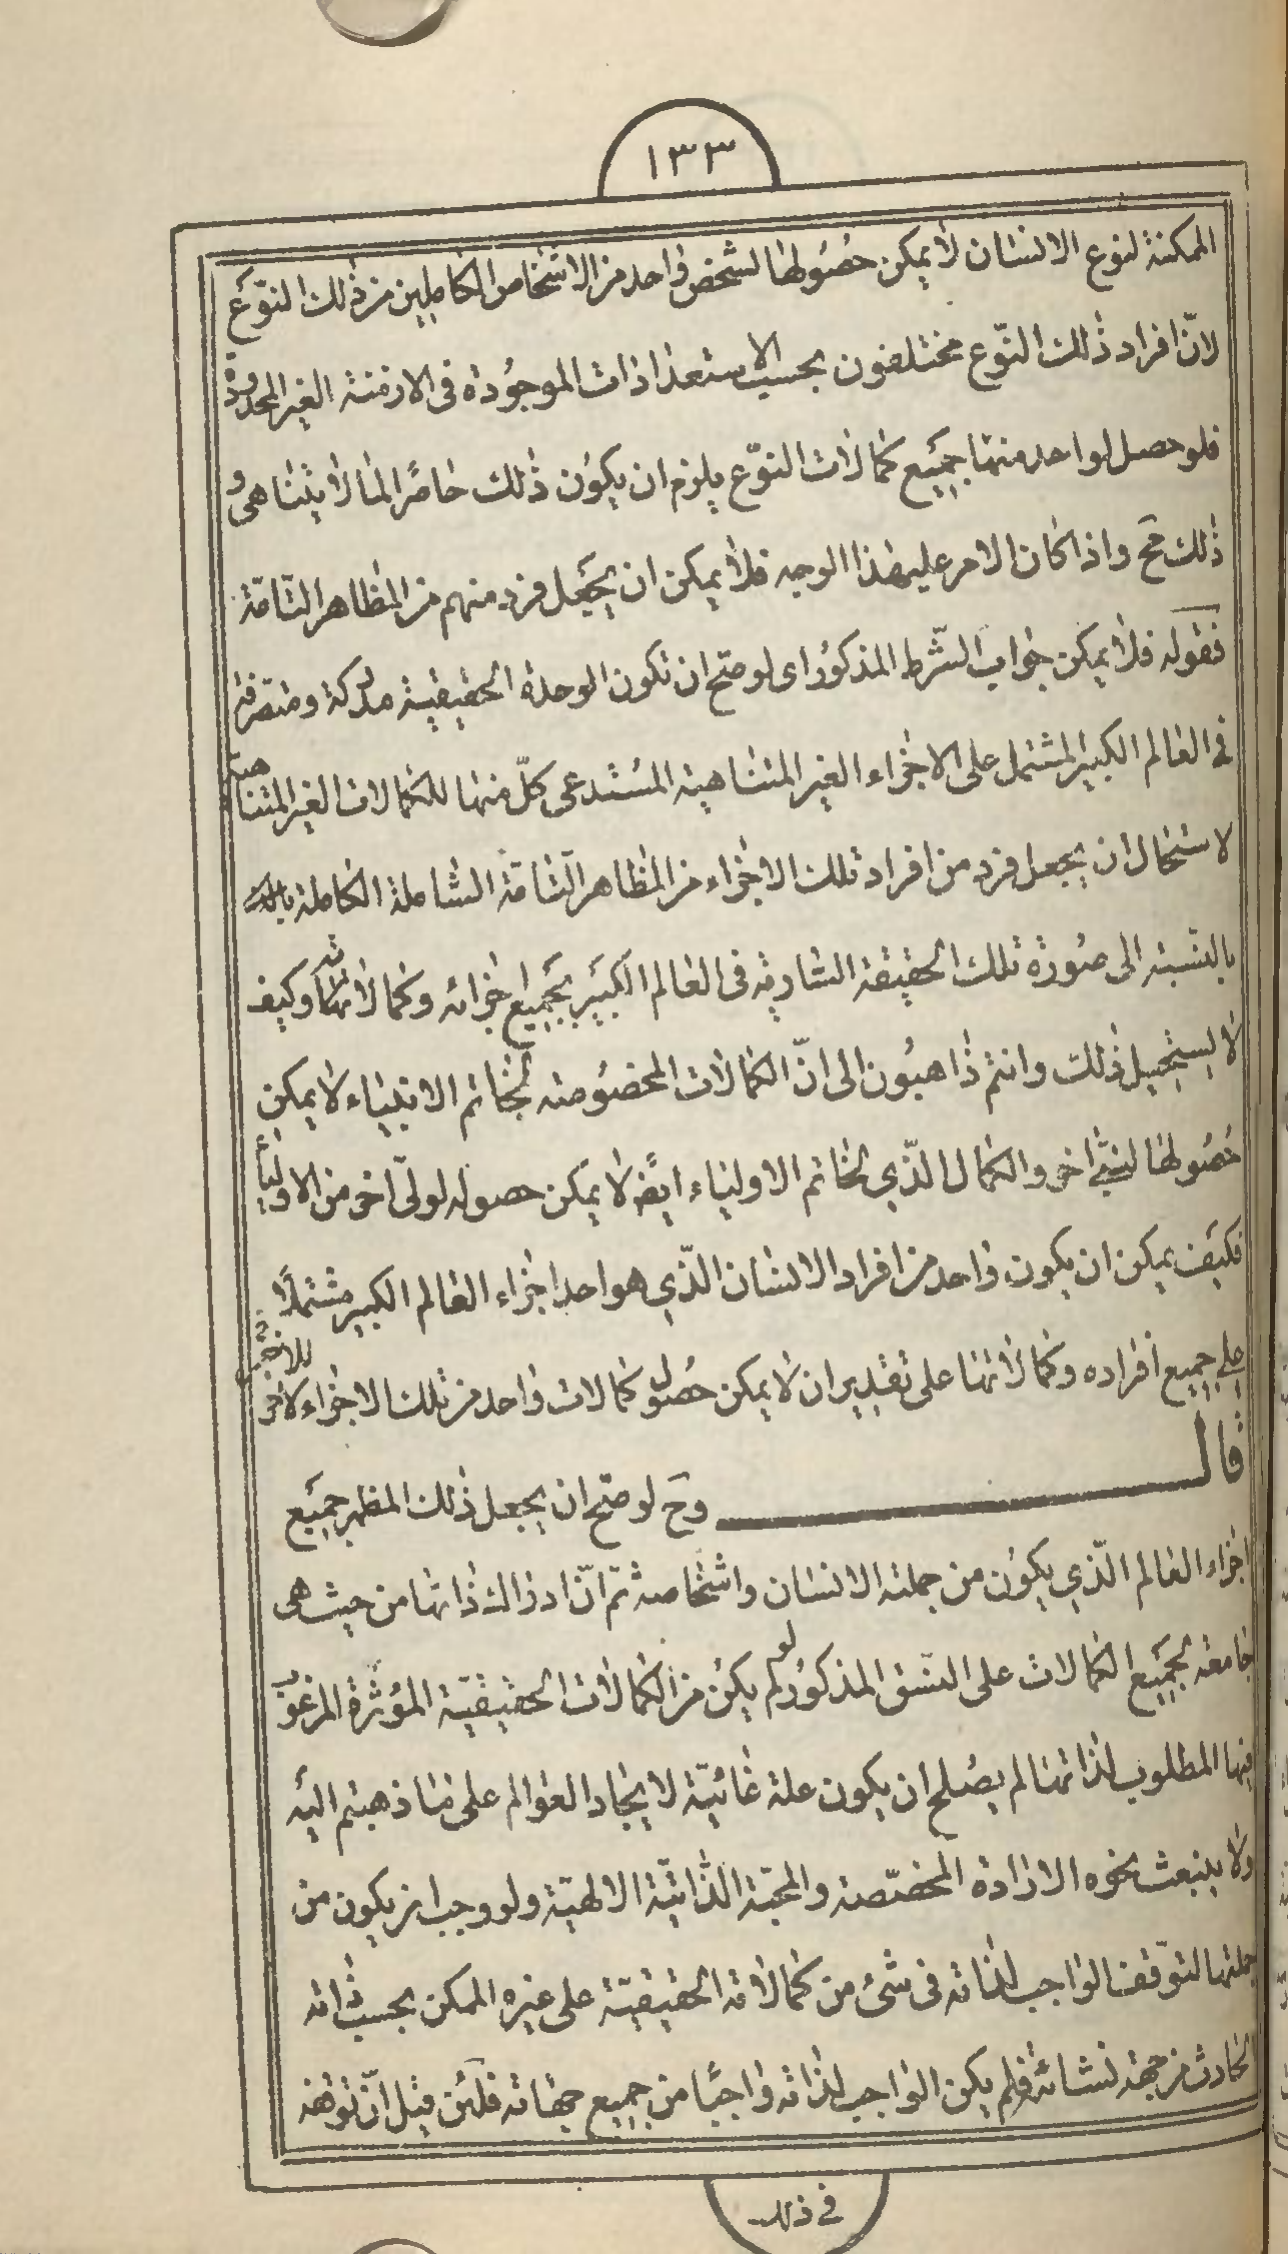 ١٣٣
الممكنة لنوع الانسان لا يمكن حصولها لشخص واحد من الاشخاص الكاملين من ذلك النوع
لانّ افراد ذلك النّوع مختلفون بحسب الاستعدادات الموجودة فى الازمنة الغير المحدودة
فلو حصل لواحد منها جميع كمالات النوّع يلزم ان يكون ذلك حاصرًا لما لا يتناهى و
ذلك مح واذا كان الامر على هذا الوجه فلا يمكن ان يجعل فرد منهم من المظاهر التّامّة
فقوله فلا يمكن جواب الشّرط المذكور اى لو صحّ ان تكون الوحدة الحقيقية مدركة ومتصرفة
فى العالم الكبير المشتمل على الاجزاء الغير المتناهية المستدعى كلّ منها للكمالات الغير المتناهية
لاستحال ان يجعل فرد من افراد تلك الاجزاء من المظاهر التّامّة الشاملة الكاملة
بالنّسبة الى صورة تلك الحقيقة السّارية فى العالم الكبير بجميع اجزائه وكمالاتها وكيف
لا يستحيل ذلك وانتم ذاهبون الى انّ الكمالات المخصوصة بخاتم الانبياء لا يمكن
حصولها لنبىّ اخر والكمال الّذي لخاتم الاولياء ايضً لا يمكن حصوله لولىّ اخر من الاولياء
فكيف يمكن ان يكون واحد من افراد الانسان الّذي هو احد اجزاء العالم الكبير مشتملًا
على جميع افراده وكمالاتها على تقدير ان لا يمكن حصول كمالات واحد من تلك الاجزاء لاخر
قال وحَ لو صحّ ان يجعل ذلك المظهر جميع
اجزاء العالم الّذي يكون من جملته الانسان واشخاصه ثمّ انّ ادراك ذاتها من حيث هى
جامعة لجميع الكمالات على النّسق المذكور لو لم يكن من الكمالات الحقيقيّة المؤثرة المرغوب
فيها المطلوب لذاتها لم يصلح ان يكون علة غائيّة لايجاد العوالم على ما ذهبتم اليه
ولا ينبعث نحوه الارادة المخصّصة والمحبّة الذّاتيّة الالهيّة ولو وجب ان يكون من
جملتها لتوّقف الواجب لذاته فى شئ من كمالاته الحقيقيّة على غيره الممكن بحسب ذاته
الحادث من جهة نشاته فلم يكن الواجب لذاته واجبًا من جميع جهاته فلئن قيل انّ توقفه
فى ذلك